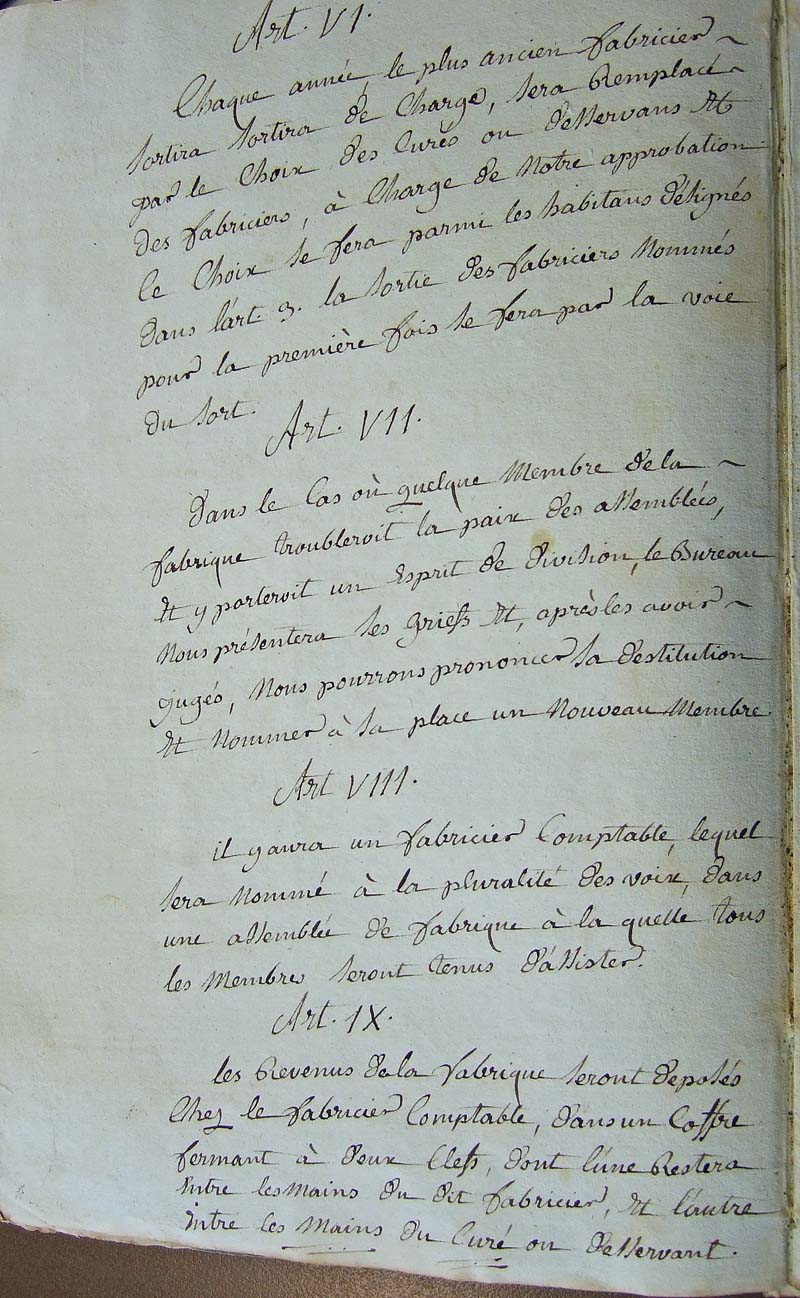 Art. VI.
Chaque année, le plus ancien fabricier ~
sortira sortira de Charge, sera Remplacé ~
par le Choix des Curés ou desservans et
des fabriciers, à Charge de Notre approbation
le Choix se fera parmi les habitans désignés
dans l'art. 3. la sortie des fabriciers Nommés
pour la première fois se fera par la voie
du sort.
Art. VII.
dans le Cas où quelque Membre de la ~
fabrique troubleroit la paix des assemblées,
et y porteroit un Esprit de division, le Bureau
Nous présentera ses griefs et, après les avoir ~
jugés, Nous pourrons prononcer sa destitution
et Nommer à sa place un Nouveau Membre.
Art VIII.
il y aura un fabricier Comptable, lequel
sera Nommé à la pluralité des voix, dans
une assemblée de fabrique à la quelle tous
les Membres seront tenus d'assister.
Art. IX.
les Revenus de la fabrique seront déposés
Chez le fabricier Comptable, dans un Coffre
fermant à deux Clefs, dont l'une Restera
Entre les Mains du dit fabricier, et l'autre
Entre les Mains du Curé ou desservant.